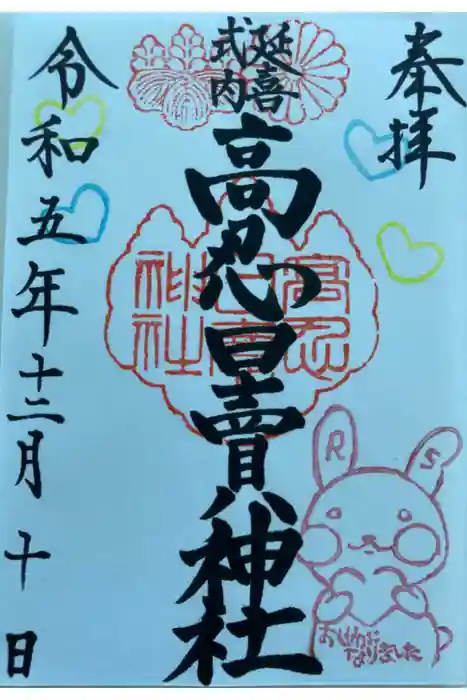 奉拝
延喜
式内
高忍日賣神社
令和五年十二月十日
高忍
日賣
神社
R S
おせわに
なりました